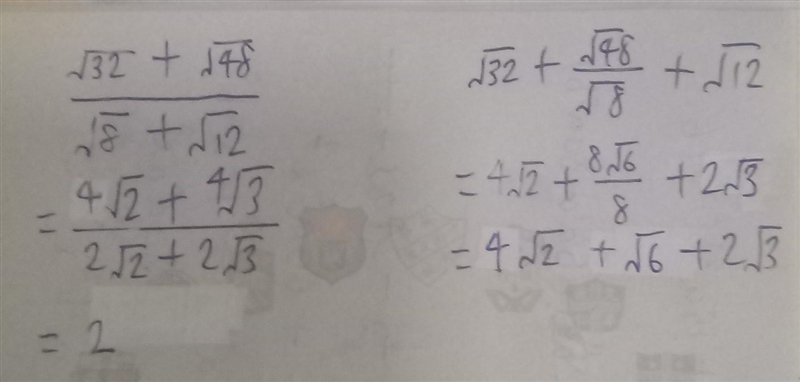 (√32 + √48)/(√8 + √12)
= (4√2 + 4√3)/(2√2 + 2√3)
= 2
√32 + √48/√8 + √12
= 4√2 + 8√6/8 + 2√3
= 4√2 + √6 + 2√3